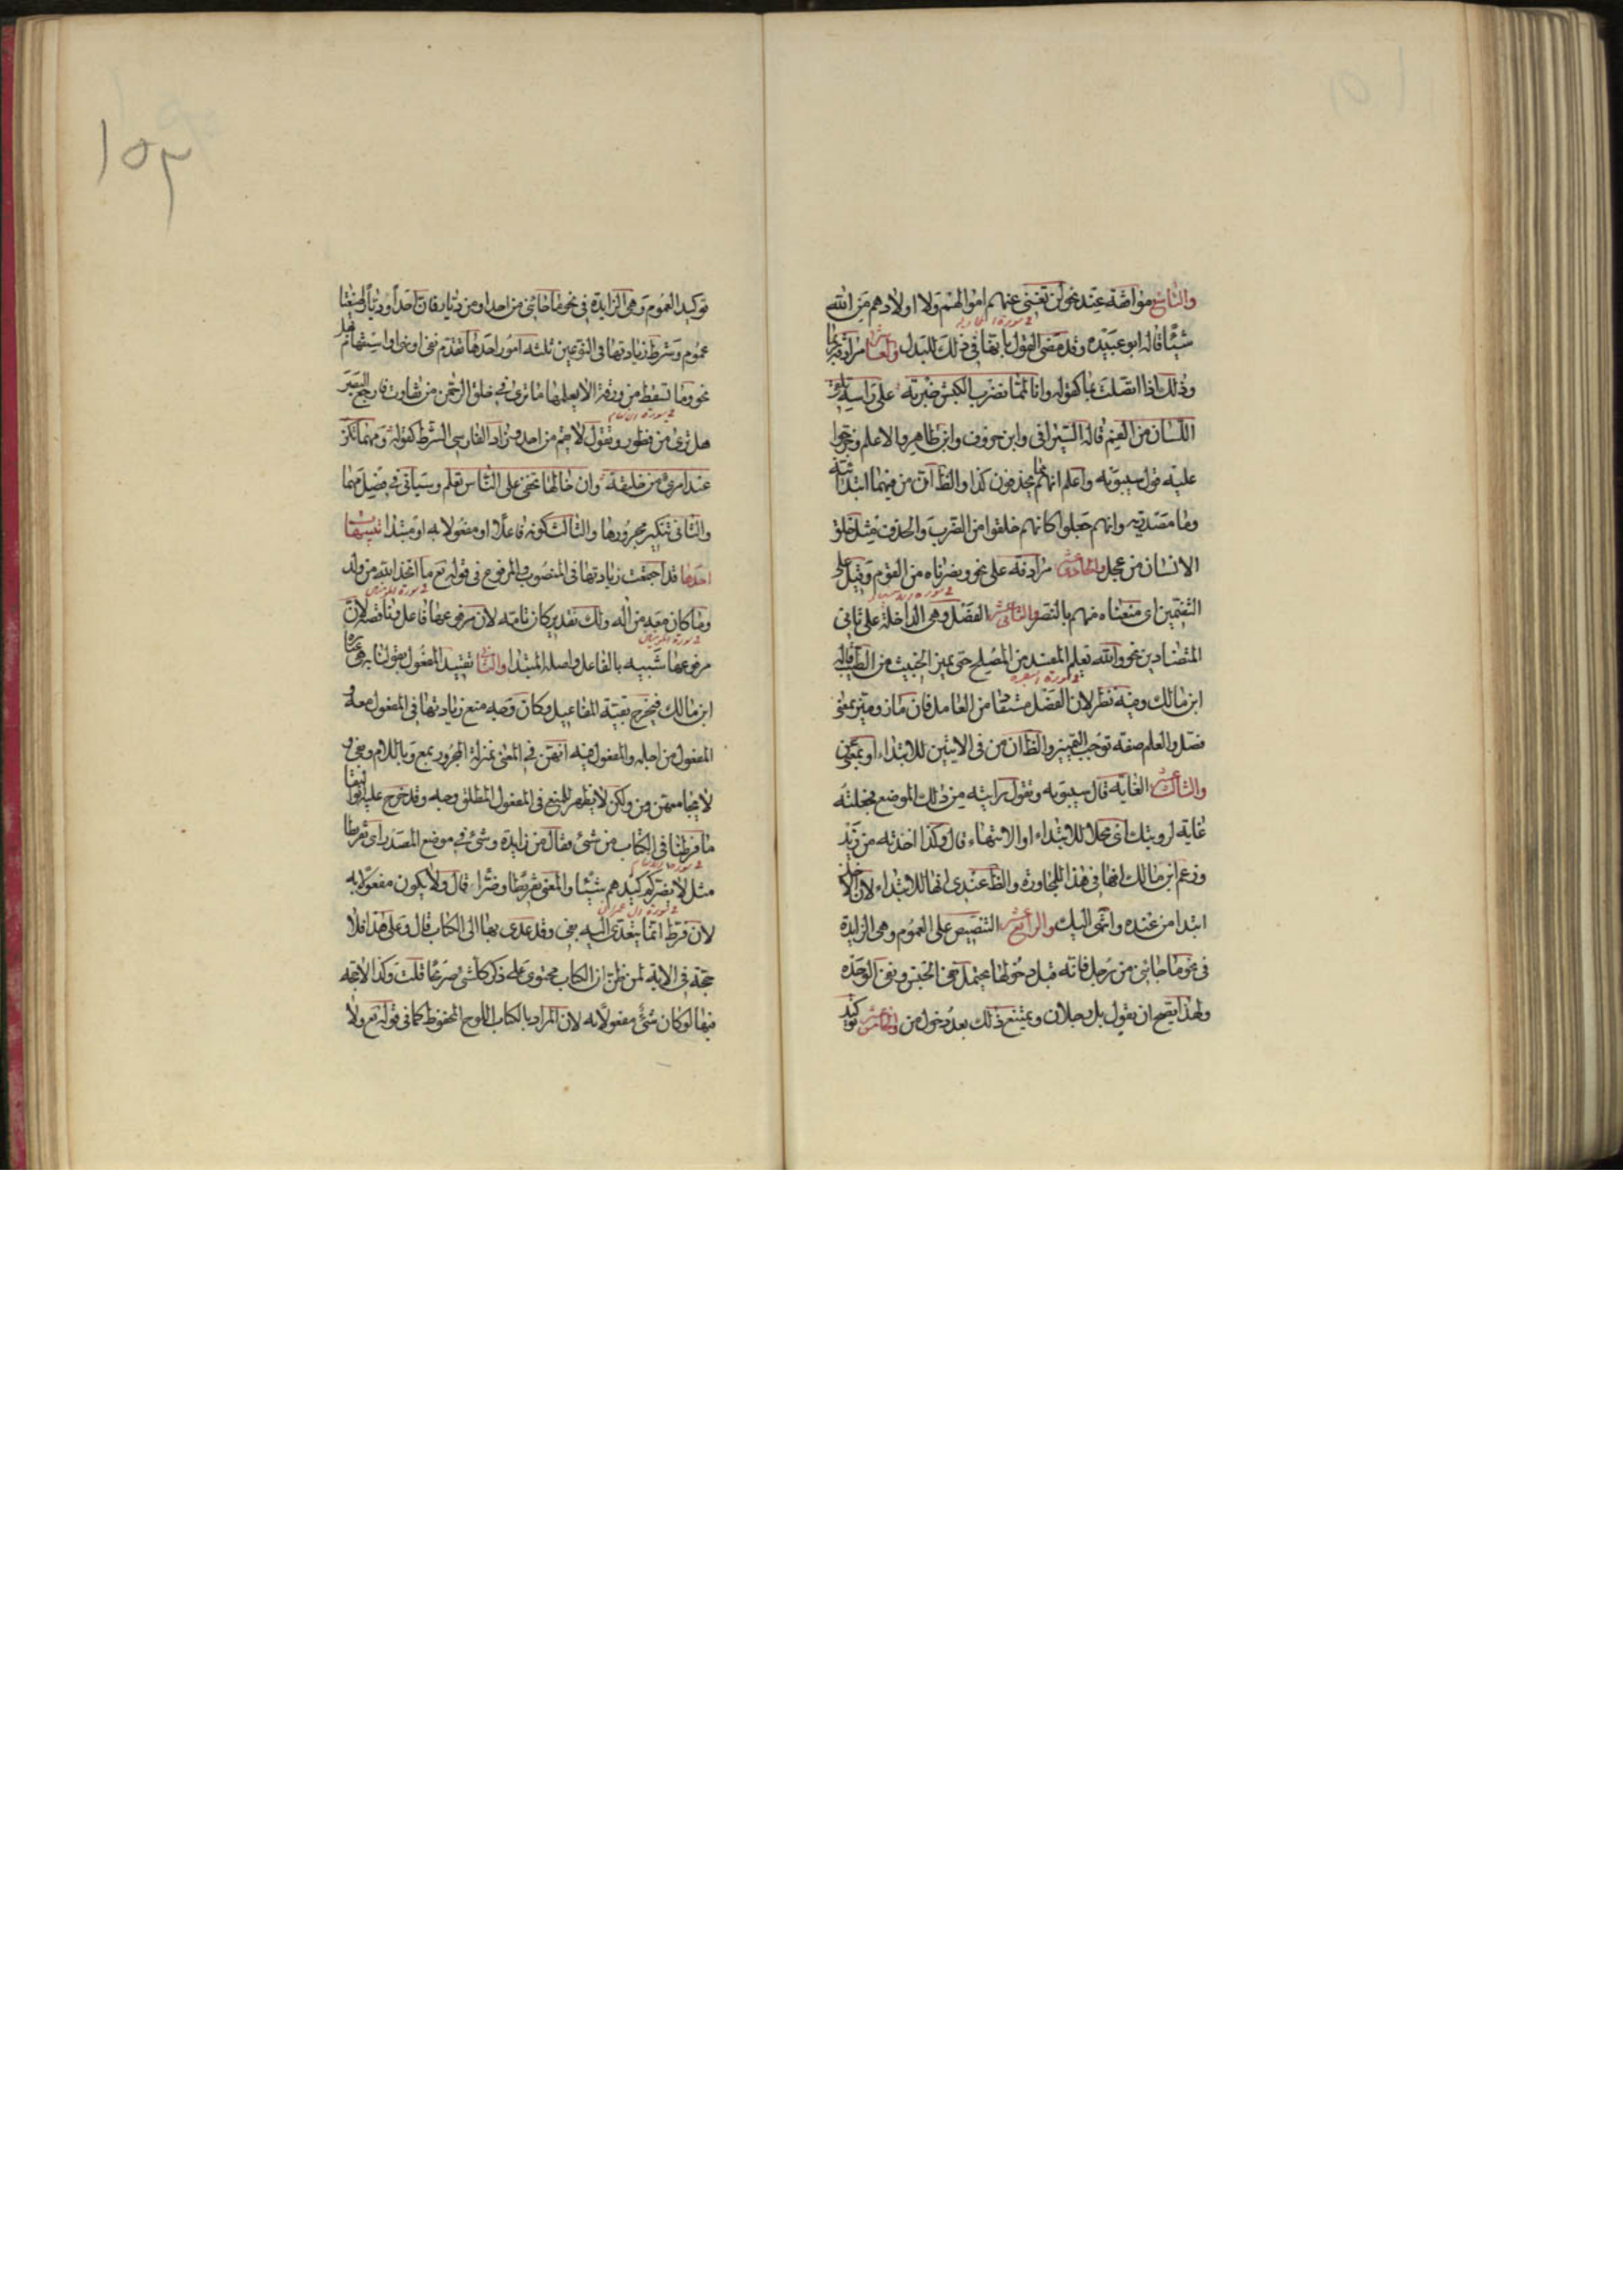 والتاسع موافقة عند نحو لن تغنى عنهم اموالهم ولا اولادهم من الله
شيئا قاله ابو عبيده وقد مضى القول بانها فى ذلك للبدل والعاشر مرادفة ربما
وذلك اذا اتصلت بما كقوله وانا لمما نضرب الكبش ضربة على راسه تلقى
اللسان من الفم قاله السيرافى وابن خروف وابن طاهر والاعلم وخرجوا
عليه قول سيبويه واعلم انهم مما يحذفون كذا والظ ان من فيهما ابتدائية
وما مصدرية وانهم جعلوا كانهم خلقوا من الضرب والحذف مثل خلق
الانسان من عجل والحادى عشر مرادفة على نحو ونصرناه من القوم وقيل على
التضمين اى منعناه منهم بالنصر والثانى عشر الفصل وهى الداخلة على ثانى
المتضادين نحو والله يعلم المفسد من المصلح حتى يميز الخبيث من الطيب قاله
ابن مالك وفيه نظر لان الفصل مستفاد من العامل فان ماز وميز بمعنى
فصل والعلم صفة توجب التمييز والظ ان من فى الايتين للابتداء او بمعنى عن
والثالث عشر الغاية قال سيبويه وتقول رايته من ذلك الموضع فجعلته
غاية لرويتك اى محلا للابتداء او الانتهاء قال وكذا اخذته من زيد
وزعم ابن مالك انها فى هذا للمجاوزة والظ عندى انها للابتداء لان الاخذ
ابتدا من عنده وانتهى اليك والرابع عشر التنصيص على العموم وهى الزايدة
فى نحو ما جائنى من رجل فانه قبل دخولها يحتمل نفى الجنس ونفى الوحدة
ولهذا يصح ان يقول بل رجلان ويمتنع ذلك بعد دخول من والخامس عشر توكيد
١٥٢
توكيد العموم وهى الزايدة فى نحو ما جائنى من احد او من ديار فان احدا وديارا صيغتا
عموم وشرط زيادتها فى النوعين ثلثة امور احدها تقدم نفى او نهى او استفهام بهل
نحو وما تسقط من ورقة الا يعلمها ما ترى فى خلق الرحمن من تفاوت فارجع البصر
هل ترى من فطور وتقول لا يقم من احد وزاد الفارسى الشرط كقوله ومهما تكن
عند امرئ من خليقة وان خالها تخفى على الناس تعلم وسياتى فى فصل مهما
والثانى تنكير مجرورها والثالث كونه فاعلا او مفعولا به او مبتدا تنبيهات
احدها قد اجتمعت زيادتها فى المنصوب والمرفوع فى قوله تع ما اتخذ الله من ولد
وما كان معه من اله ولك تقدير كان تامة لان مرفوعها فاعل وناقصة لان
مرفوعها شبيه بالفاعل واصله المبتدا والثانى تقييد المفعول بقولنا به هى عبارة
ابن مالك فيخرج بقية المفاعيل وكان وجه منع زيادتها فى المفعول معه و
المفعول من اجله والمفعول فيه انهن فى المعنى بمنزلة المجرور بمع وباللام وبفى و
لا يجامعهن من ولكن لا يظهر للمنع فى المفعول المطلق وجه وقد خرج عليه ابو البقا
ما فرطنا فى الكتاب من شئ فقال من زايدة وشئ فى موضع المصدر اى تفريطا
مثل لا يضركم كيدهم شيئا والمعنى تفريطا وضرا قال ولا يكون مفعولا به
لان فرط انما يتعدى اليه بفى وقد عدى بها الى الكتاب قال وعلى هذا فلا
حجة فى الاية لمن ظن ان الكتاب محتوى على ذكر كل شئ صريحا قلت وكذا لا حجة
فيها لو كان شئ مفعولا به لان المراد بالكتاب اللوح المحفوظ كما فى قوله تع ولا